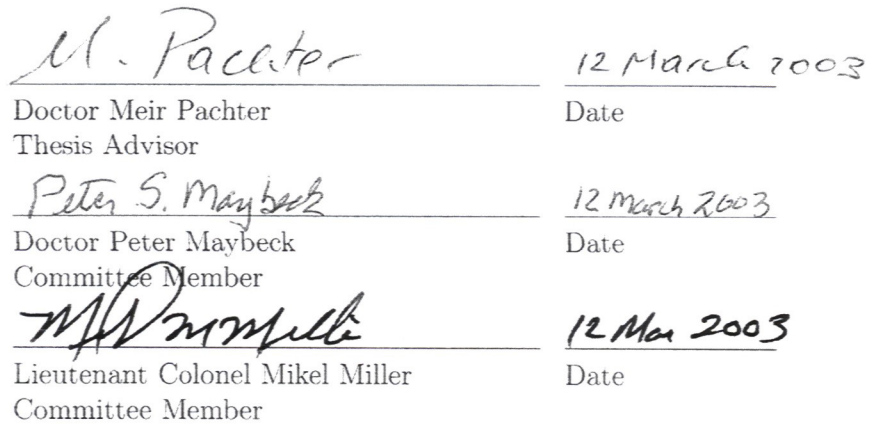 M. Pachter 12 March 2003
Doctor Meir Pachter Date
Thesis Advisor
Peter S. Maybeck 12 March 2003
Doctor Peter Maybeck Date
Committee Member
12 Mar 2003
Lieutenant Colonel Mikel Miller Date
Committee Member